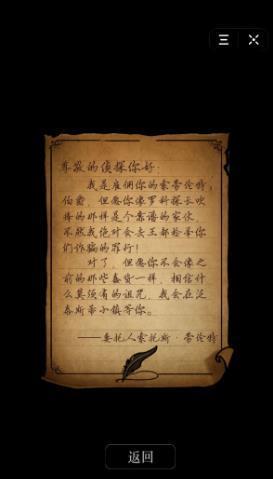 尊敬的侦探你好:
我是雇佣你的索蒂伦特
伯爵，但愿你像罗科探长吹
捧的那样是个靠谱的家伙，
不然我绝对会去王都检举你
们诈骗的罪行！
对了，但愿你不会像之
前的那些蠢货一样，相信什
么莫须有的诅咒，我会在泛
泰斯蒂小镇等你。
——委托人索托斯·蒂伦特
返回